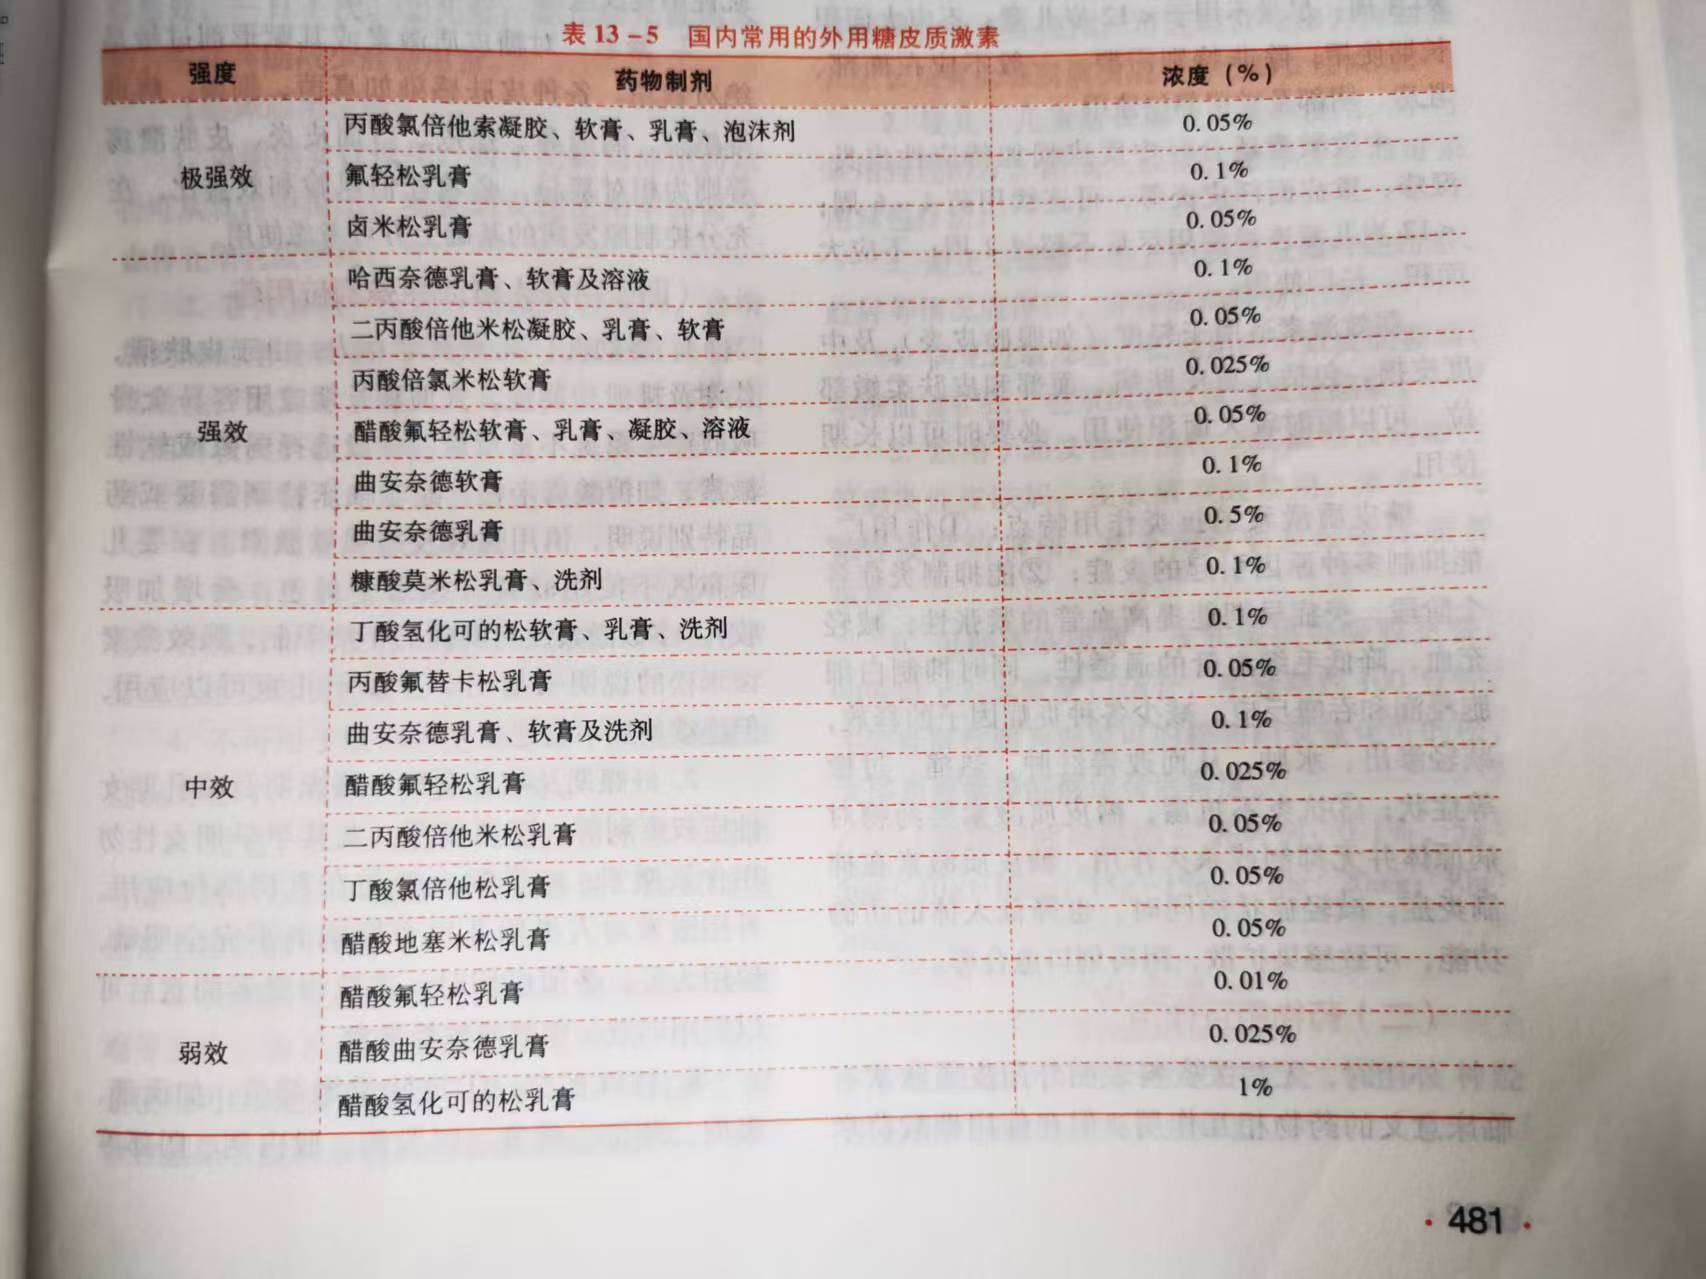 表 13-5 国内常用的外用糖皮质激素
强度 药物制剂 浓度(%)
极强效 丙酸氯倍他索凝胶、软膏、乳膏、泡沫剂 0.05%
氟轻松乳膏 0.1%
卤米松乳膏 0.05%
强效 哈西奈德乳膏、软膏及溶液 0.1%
二丙酸倍他米松凝胶、乳膏、软膏 0.05%
丙酸倍氯米松软膏 0.025%
醋酸氟轻松软膏、乳膏、凝胶、溶液 0.05%
曲安奈德软膏 0.1%
曲安奈德乳膏 0.5%
糠酸莫米松乳膏、洗剂 0.1%
中效 丁酸氢化可的松软膏、乳膏、洗剂 0.1%
丙酸氟替卡松乳膏 0.05%
曲安奈德乳膏、软膏及洗剂 0.1%
醋酸氟轻松乳膏 0.025%
二丙酸倍他米松乳膏 0.05%
丁酸氯倍他松乳膏 0.05%
醋酸地塞米松乳膏 0.05%
弱效 醋酸氟轻松乳膏 0.01%
醋酸曲安奈德乳膏 0.025%
醋酸氢化可的松乳膏 1%
·481·